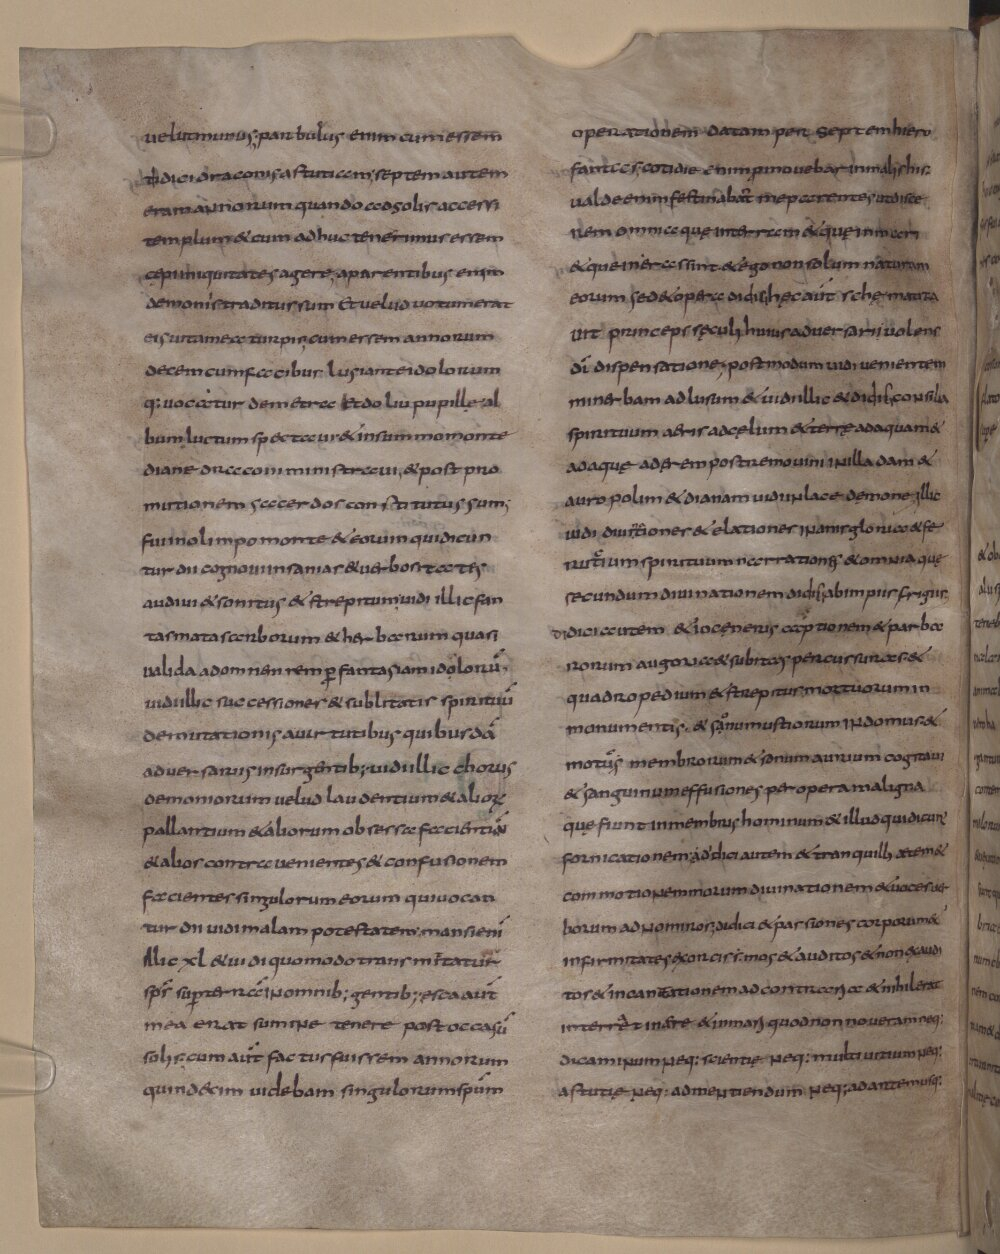 velut minus; parbulus enim cum essem
didici draconis astutiam; septem autem
eram annorum quando ad solis accessi
templum & cum adhuc tenerimus essem
cepi iniquitates agere; a parentibus enim
demonis traditus sum Et velud votum erat
eis vita mea turpis; cum essem annorum
decem cum facibus lusi ante idolorum
q; vocatur demetra Et dolui pupille al
bum luctum spectavi & in summo monte
diane draconi ministravi, & post pro
mutionem sacerdos constitutus sum;
fui in olimpo monte & eorum qui dicun
tur dii cognovi insanias & verbositates
audivi & sonitus & strepitum; vidi illic fan
tasmata arborum & herbarum quasi
valida ad omnem rem p fantasiam idolorū.
vidi illic successiones & sublitatis spirituū
demutationis a virtutibus quibusdā
adversariis insurgentib; vidi illic chorus
demoniorum velud laudentium & alior
pallantium & aliorum obsessa faciantiū
& alios contravenientes & confusionem
facientes singulorum eorum qui vocan
tur dii vidi malam potestatem; mansi enī
illic xl & vidi quomodo transmittatur
sp̄s supterrea in omnib; gentib; esca aūt
mea erat summe tenere post occasū
solis; cum aūt factus fuissem annorum
quindecim videbam singulorum spūm
operationem datam per septem hiero
fantas; cotidie enim p movebar in malis his;
valde enim festinabāt me parentes ut disce
rem omnia que in terram & que in mari
& que in era sint & ego non solum naturam
eorum sed & opera didisci; hec aūt sche matiza
vit princeps seculi huius adversarii volens
dī dispensatione; postmodum vidi venientem
minerbam ad lusum & vidi illic & didisci consilia
spirituum aeris ad celum & terre ad aquam &
ad aque ad erem postremo vini in illa dam &
auro polim & dianam vidi in lace demone; illic
vidi divitiones & elationes in anis gloriae & fe
rutium spirituum narrationes & omnia que
secundum divinationem didisci; ab impiis frigus
didici autem & iocineris captionem & par ba
rorum auguria & subitas percussuras; &
quadropedium & strepitus mortuorum in
monumentis, & sonum ustiorum in domus; &
motus membrorum & sonum aurium cogitavi
& sanguinum effusiones per opera maligna
que fiunt in membris hominum & illud qui dicitur
fornicationem; addici autem & tranquillitatem &
commotionem morum divinationem & voces ver
borum ad nominos; didici & passiones corporum &
infirmitates & exorcismos & auditos & non exaudi
tos & incantationem ad contraria & nihil erat
in terrę t in aere & in mari quod non noveram neq;
dicam in um neq; scientie neq; multi vitium neq;
astutie neq; ad mentiendum neq; ad antem usq;